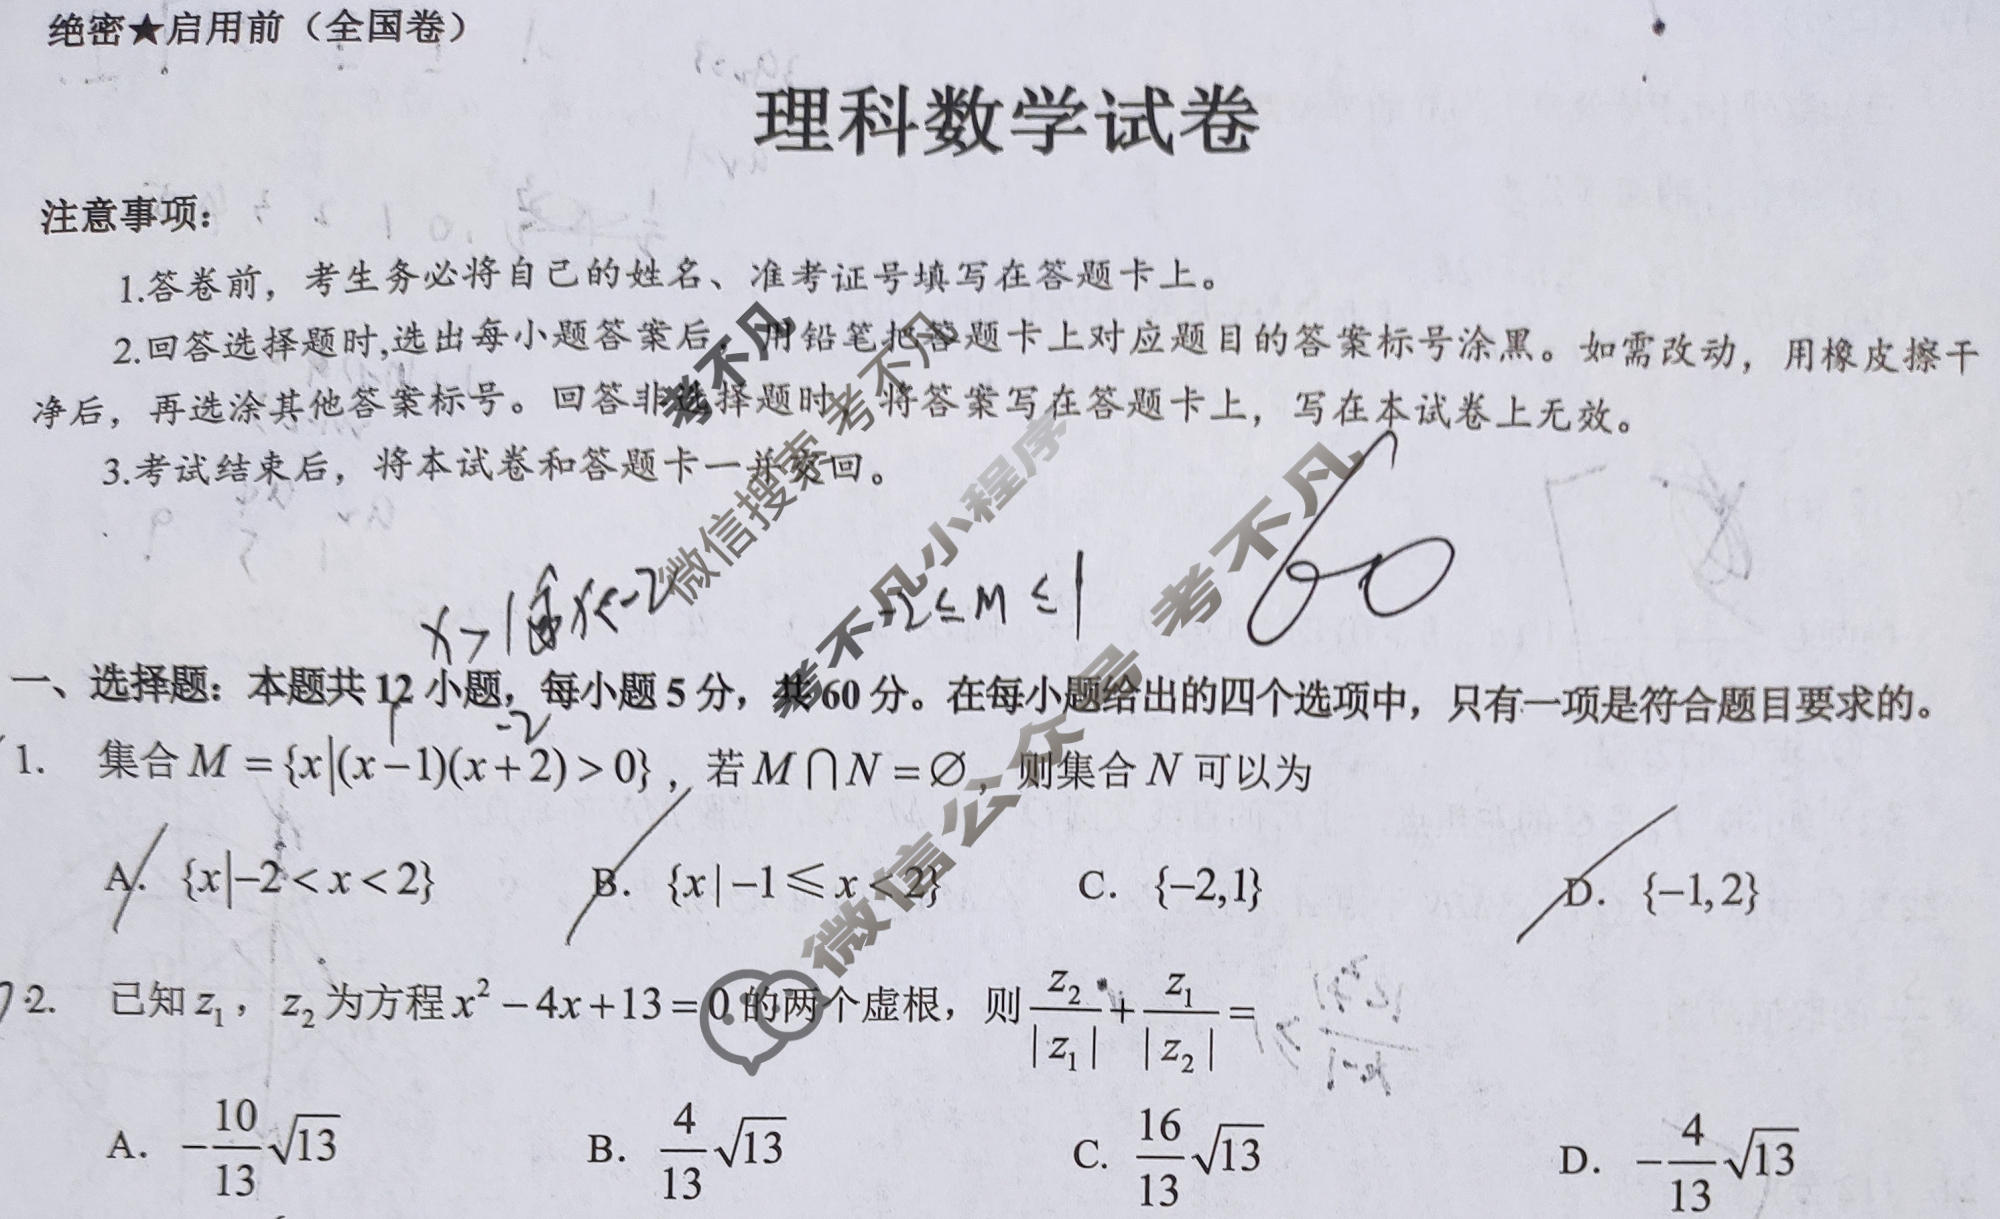 绝密★启用前（全国卷）
理科数学试卷
注意事项：
1.答卷前，考生务必将自己的姓名、准考证号填写在答题卡上。
2.回答选择题时,选出每小题答案后，用铅笔把答题卡上对应题目的答案标号涂黑。如需改动，用橡皮擦干
净后，再选涂其他答案标号。回答非选择题时，将答案写在答题卡上，写在本试卷上无效。
3.考试结束后，将本试卷和答题卡一并交回。
考不凡
微信搜索 考不凡
考不凡小程序
微信公众号 考不凡
x>1或x<-2
-2≤M≤1
60
一、选择题：本题共 12 小题，每小题 5 分，共 60 分。在每小题给出的四个选项中，只有一项是符合题目要求的。
1 -2
1. 集合 M = {x|(x−1)(x+2) > 0}，若 M ∩ N = ∅，则集合 N 可以为
A. {x|−2 < x < 2} B. {x|−1 ≤ x < 2} C. {−2,1} D. {−1,2}
2. 已知 z₁，z₂ 为方程 x² − 4x + 13 = 0 的两个虚根，则 z₂/|z₁| + z₁/|z₂| =
A. −10/13 √13 B. 4/13 √13 C. 16/13 √13 D. −4/13 √13